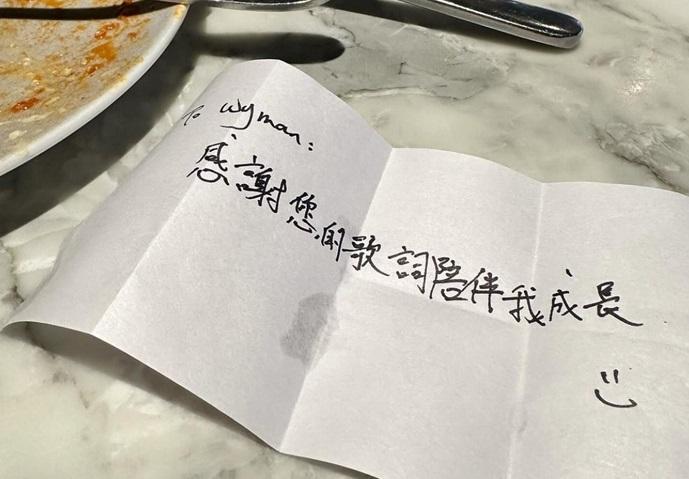 To Wyman:
感謝您的歌詞陪伴我成長